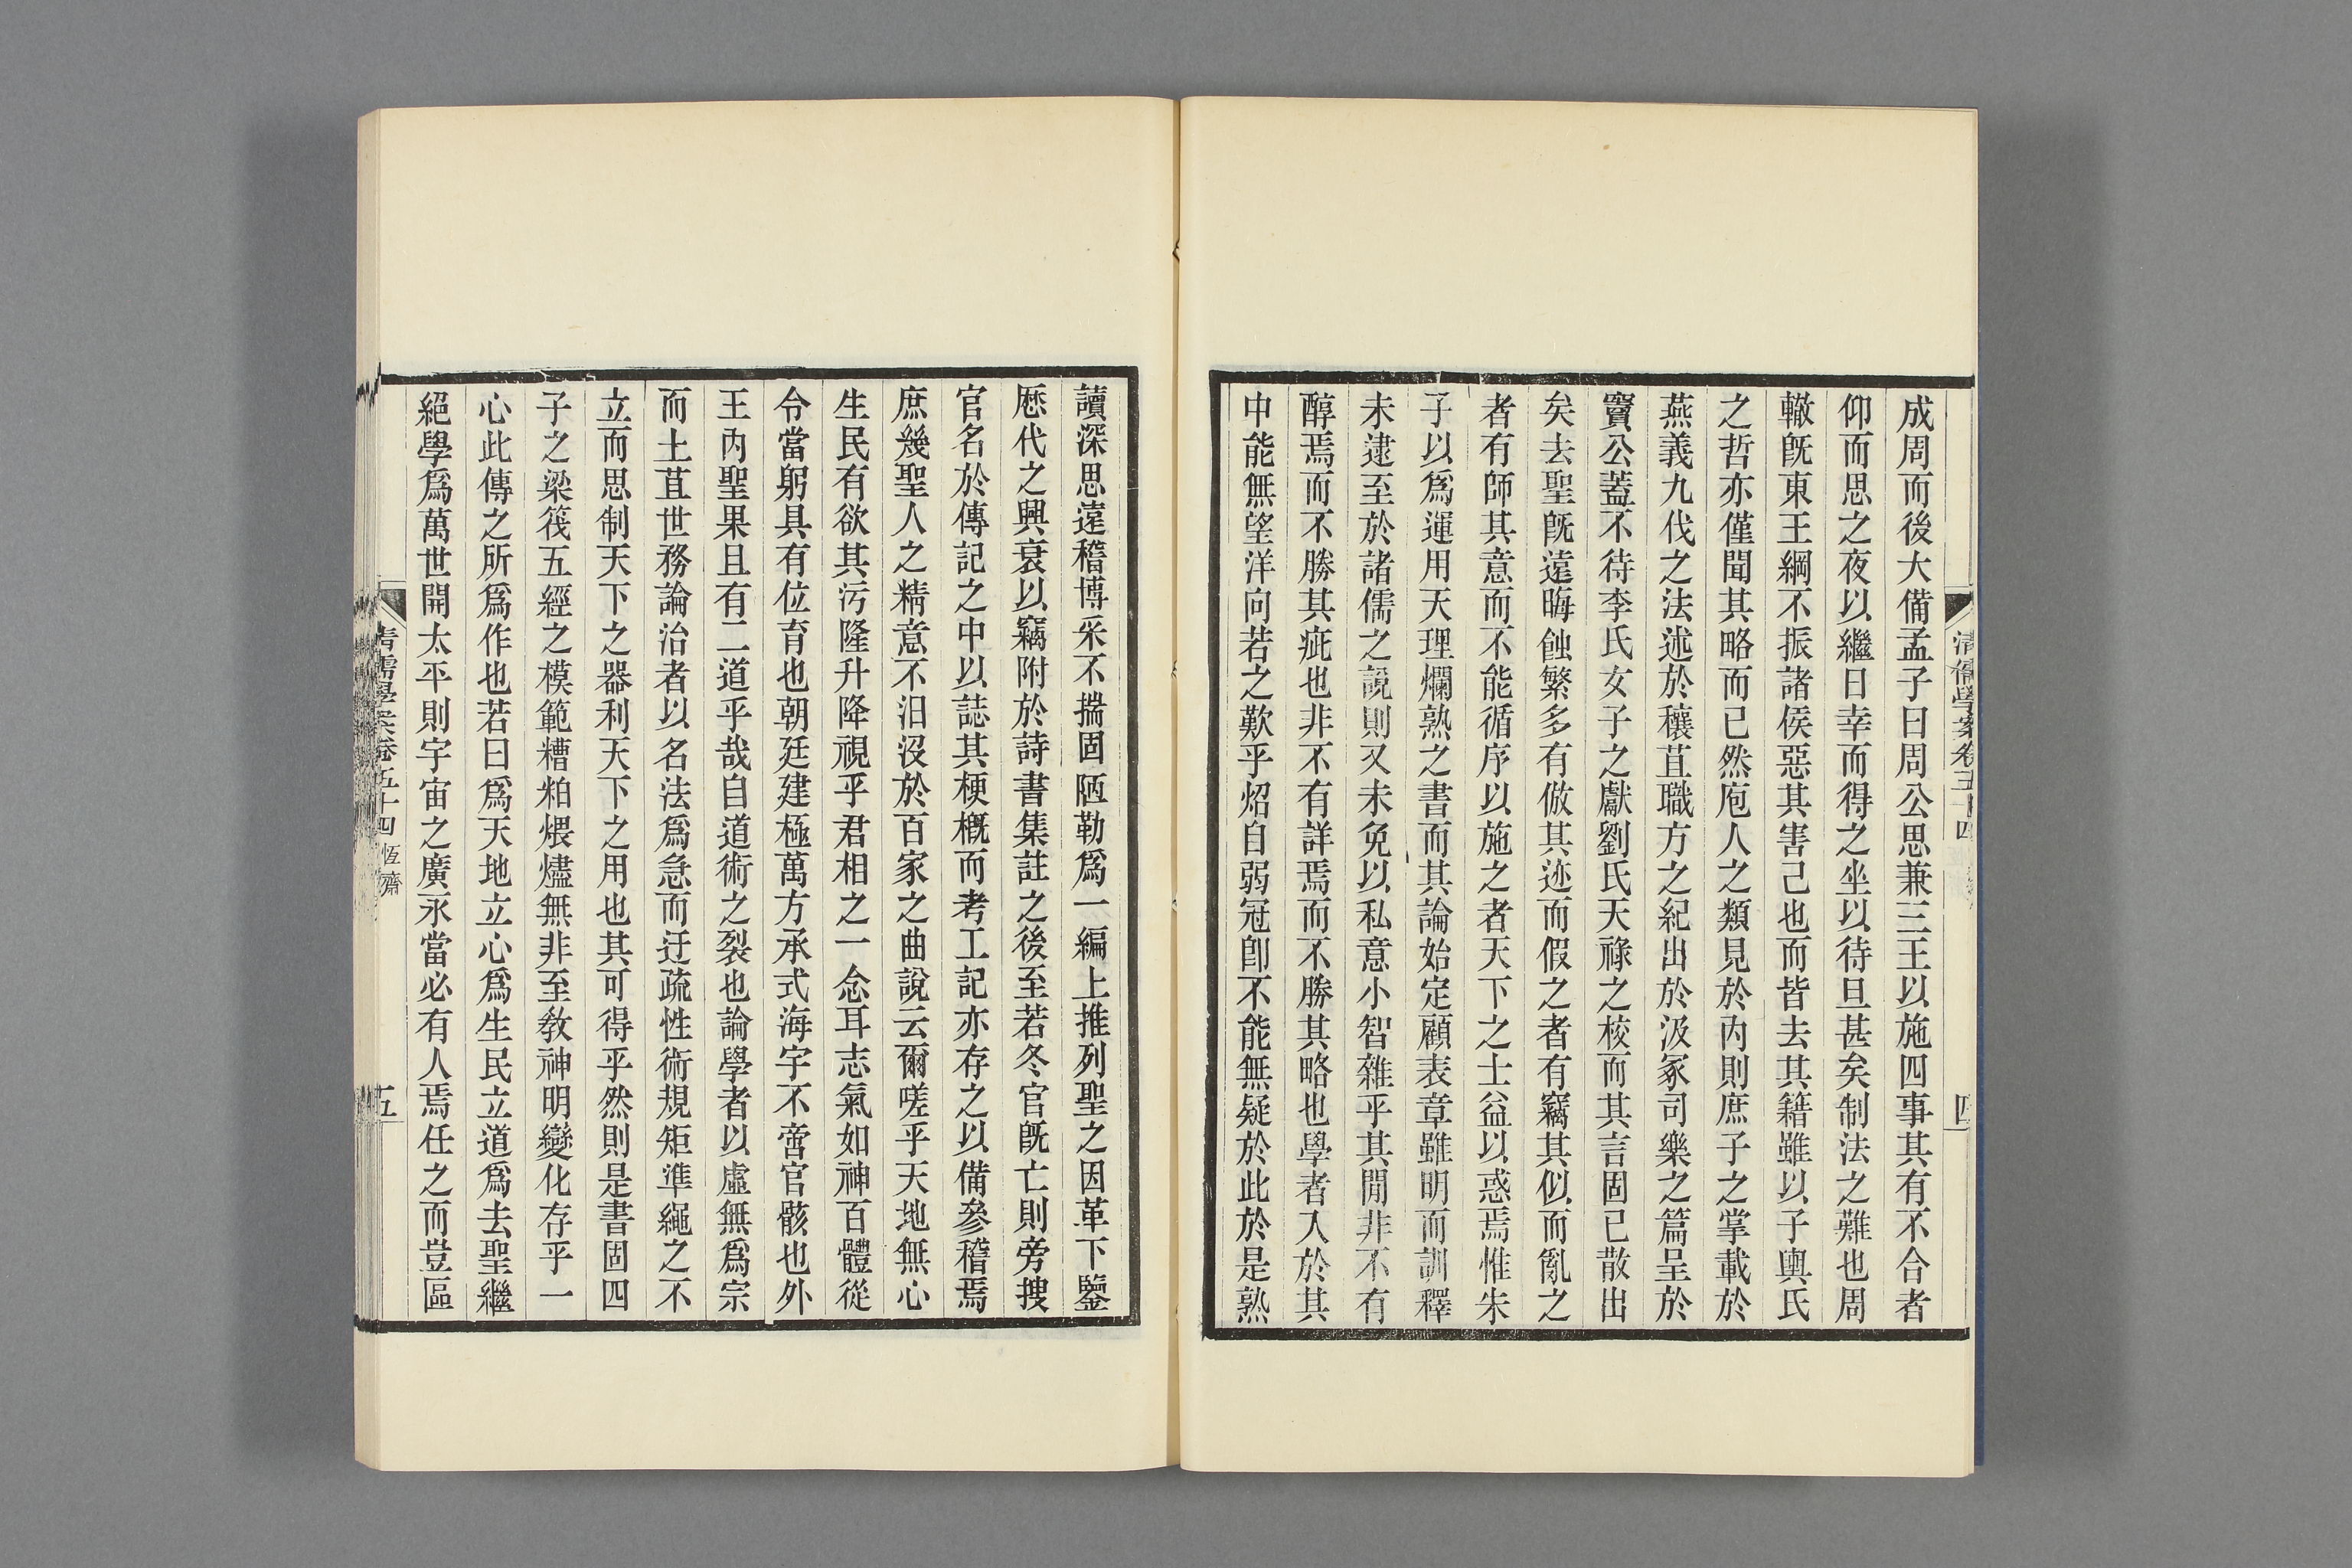 清儒學案卷五十四
四
成周而後大備孟子曰周公思兼三王以施四事其有不合者
仰而思之夜以繼日幸而得之坐以待旦甚矣制法之難也周
轍旣東王綱不振諸侯惡其害己也而皆去其籍雖以子輿氏
之哲亦僅聞其略而已然庖人之類見於內則庶子之掌載於
燕義九伐之法述於穰苴職方之紀出於汲冢司樂之篇呈於
竇公蓋不待李氏女子之獻劉氏天祿之校而其言固已散出
矣去聖旣遠晦蝕繁多有倣其迹而假之者有竊其似而亂之
者有師其意而不能循序以施之者天下之士益以惑焉惟朱
子以爲運用天理爛熟之書而其論始定顧表章雖明而訓釋
未逮至於諸儒之說則又未免以私意小智雜乎其閒非不有
醇焉而不勝其疵也非不有詳焉而不勝其略也學者入於其
中能無望洋向若之歎乎炤自弱冠卽不能無疑於此於是熟
讀深思遠稽博采不揣固陋勒爲一編上推列聖之因革下鑒
歷代之興衰以竊附於詩書集註之後至若冬官旣亡則旁搜
官名於傳記之中以誌其梗槪而考工記亦存之以備參稽焉
庶幾聖人之精意不汨沒於百家之曲說云爾嗟乎天地無心
生民有欲其污隆升降視乎君相之一念耳志氣如神百體從
令當躬具有位育也朝廷建極萬方承式海宇不啻官骸也外
王內聖果且有二道乎哉自道術之裂也論學者以虛無爲宗
而土苴世務論治者以名法爲急而迂疏性術規矩準繩之不
立而思制天下之器利天下之用也其可得乎然則是書固四
子之梁筏五經之模範糟粕煨燼無非至敎神明變化存乎一
心此傳之所爲作也若曰爲天地立心爲生民立道爲去聖繼
絕學爲萬世開太平則宇宙之廣永當必有人焉任之而豈區
清儒學案卷五十四 恆齋
五